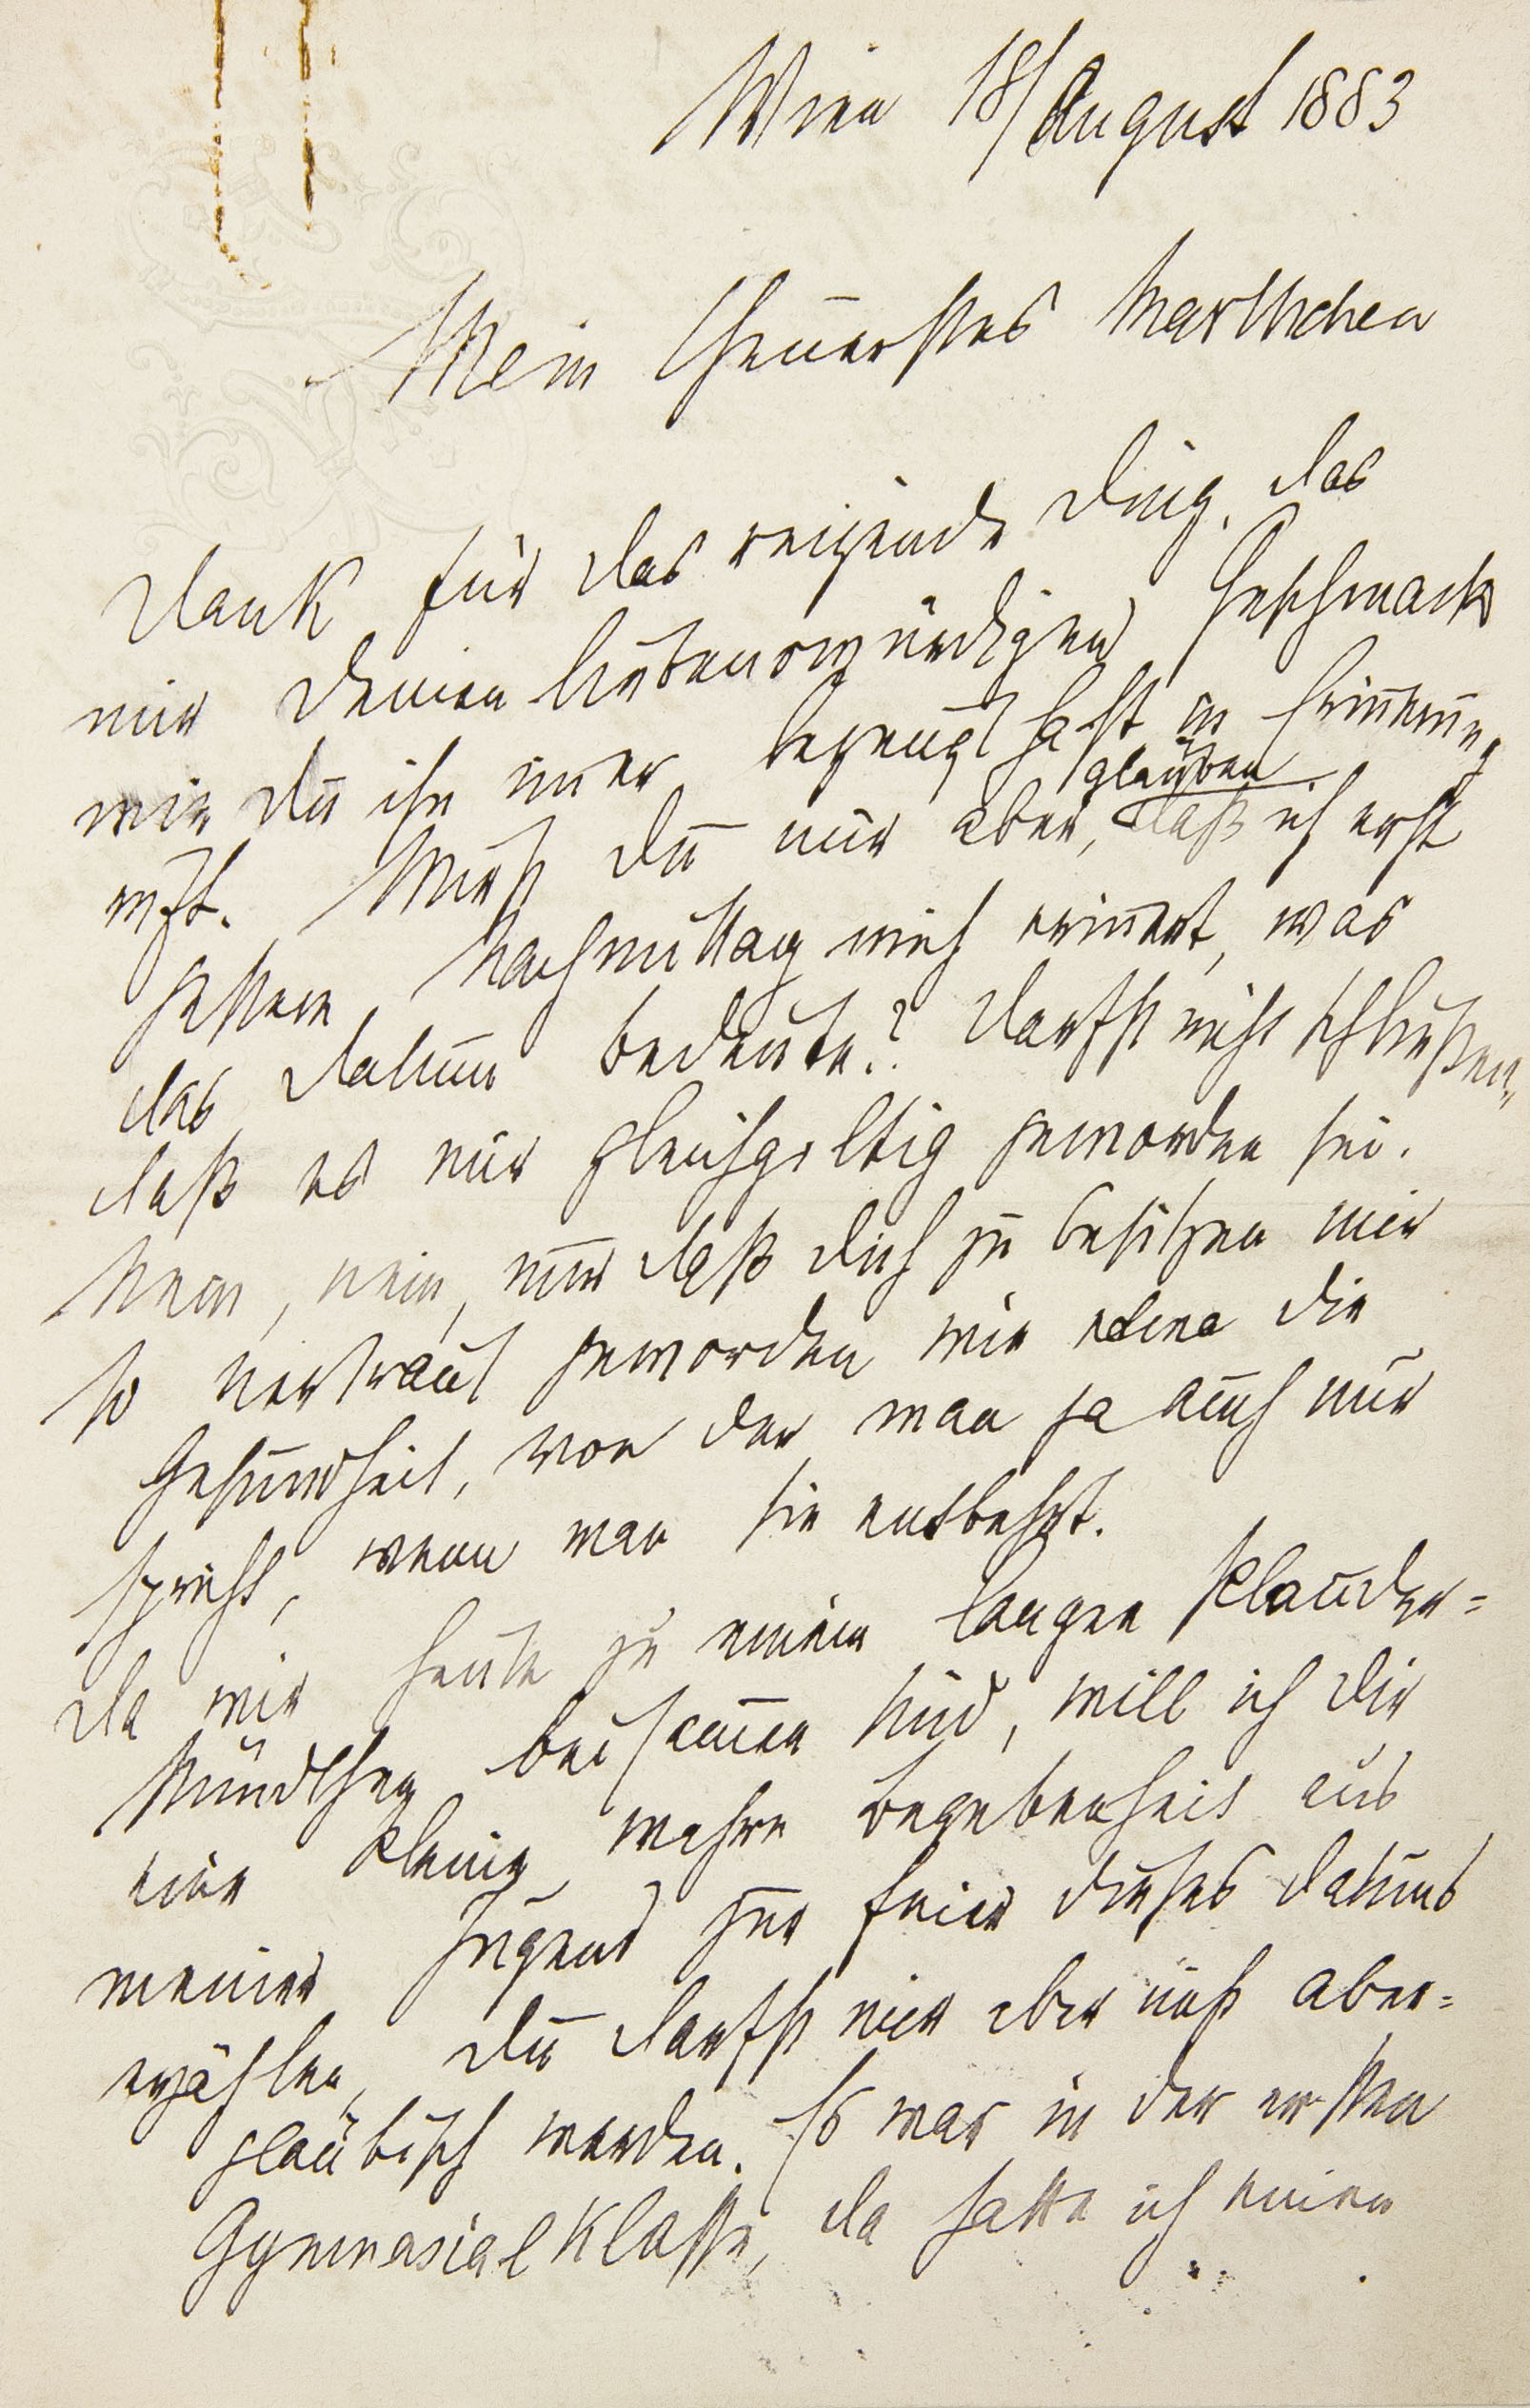 Wien 18/August 1883
Mein theuerstes Marthchen
Dank für das reizende Ding, das
mir Deinen liebenswürdigen Geschmack
wie Du ihn im̅er bezeugt hast in Erin̅erung
ruft. Wirst Du mir aber glauben, daß ich erst
gestern Nachmittag mich erin̅ert, was
das Datum bedeute? Darfst nicht schließen,
daß es mir gleichgiltig geworden sei.
Nein, nein, nur daß Dich zu besitzen mir
so vertraut geworden wie etwa die
Gesundheit, von der man ja auch nur
spricht, wenn man sie entbehrt.
Da wir heute zu einem langen Plauder=
stündchen beisam̅en sind, will ich Dir
eine kleine, wahre Begebenheit aus
meiner Jugend zur Feier dieses Datums
erzählen, Du darfst mir aber nicht aber=
gläubisch werden. Es war in der ersten
Gymnasialklasse, da hatte ich einen